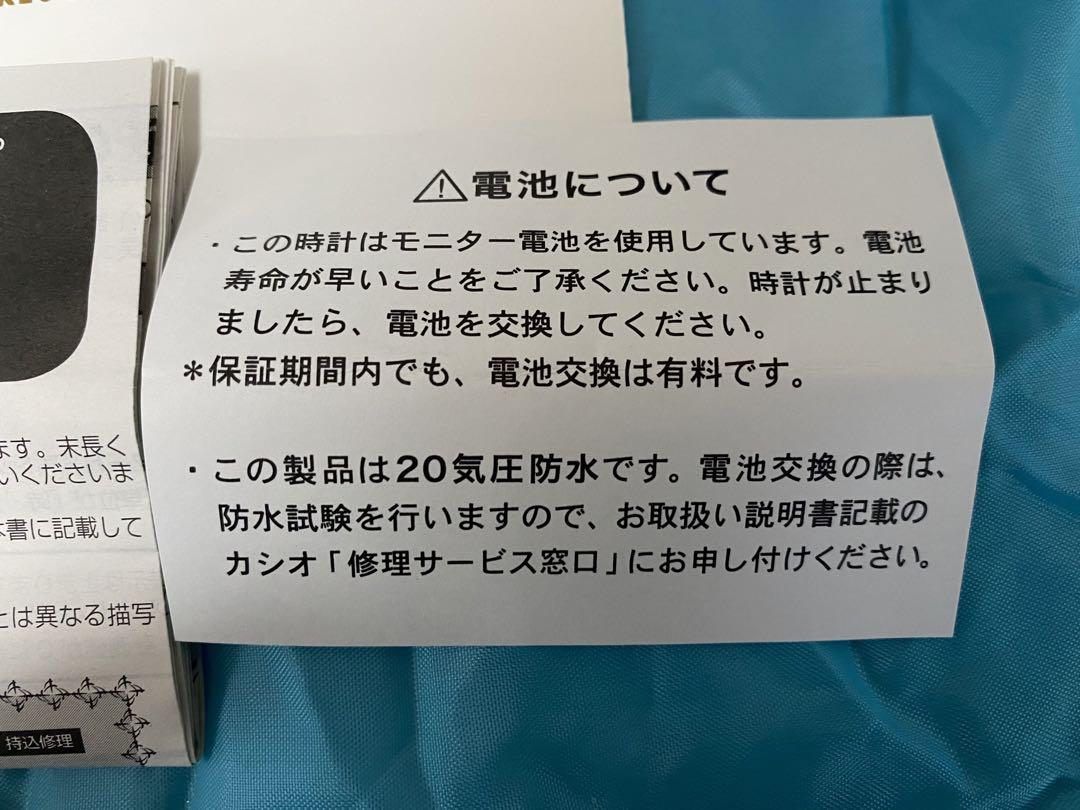 ⚠電池について
・この時計はモニター電池を使用しています。電池
寿命が早いことをご了承ください。時計が止まり
ましたら、電池を交換してください。
＊保証期間内でも、電池交換は有料です。
・この製品は20気圧防水です。電池交換の際は、
防水試験を行いますので、お取扱い説明書記載の
カシオ「修理サービス窓口」にお申し付けください。
ます。末長く
いくださいま
書に記載して
とは異なる描写
持込修理